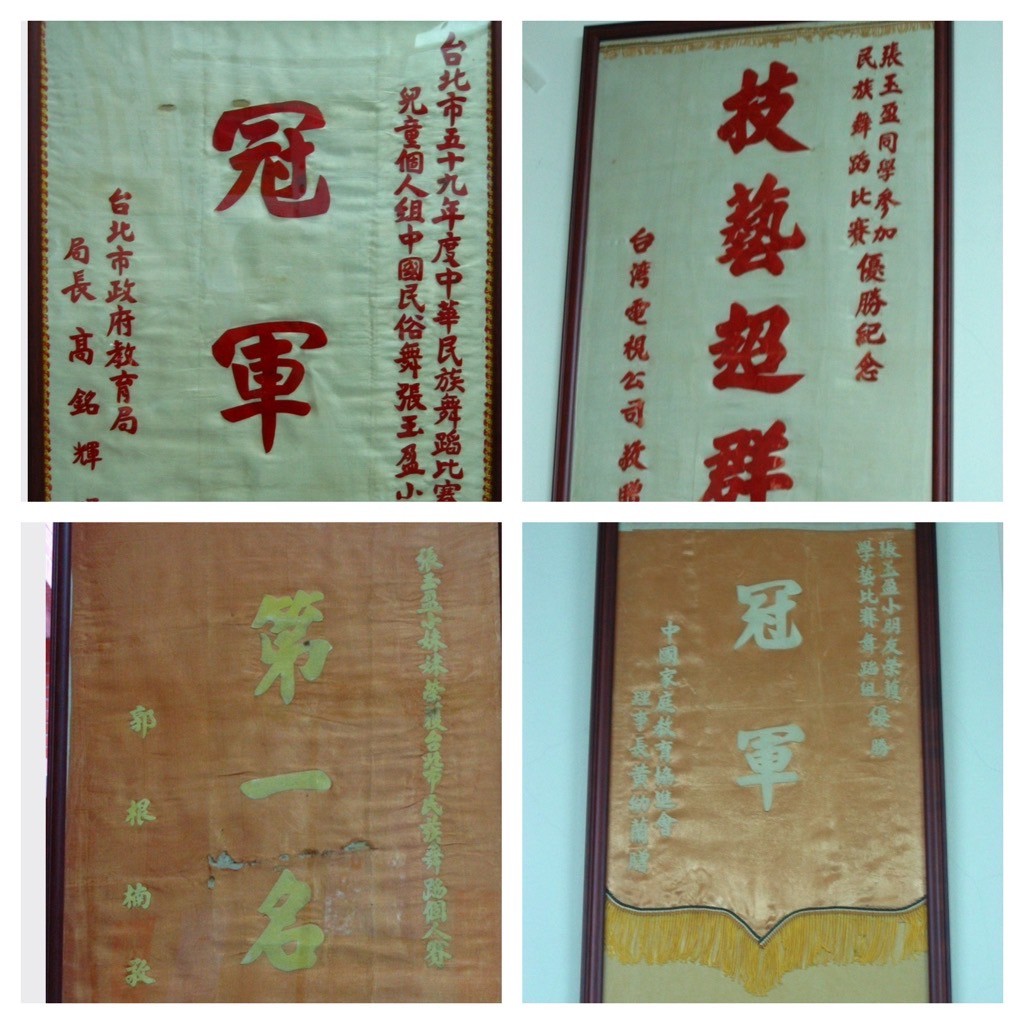 台北市五十九年度中華民族舞蹈比賽
兒童個人組中國民俗舞張玉盈小
冠軍
台北市政府教育局
局長 高銘輝
張玉盈同學參加
民族舞蹈比賽優勝紀念
技藝超群
台灣電視公司敬贈
張玉盈小妹妹榮獲台北市民族舞蹈個人賽
第一名
郭根楠敬
張玉盈小朋友榮獲
學藝比賽舞蹈組優勝
冠軍
中國家庭教育協進會
理事長黃幼蘭贈